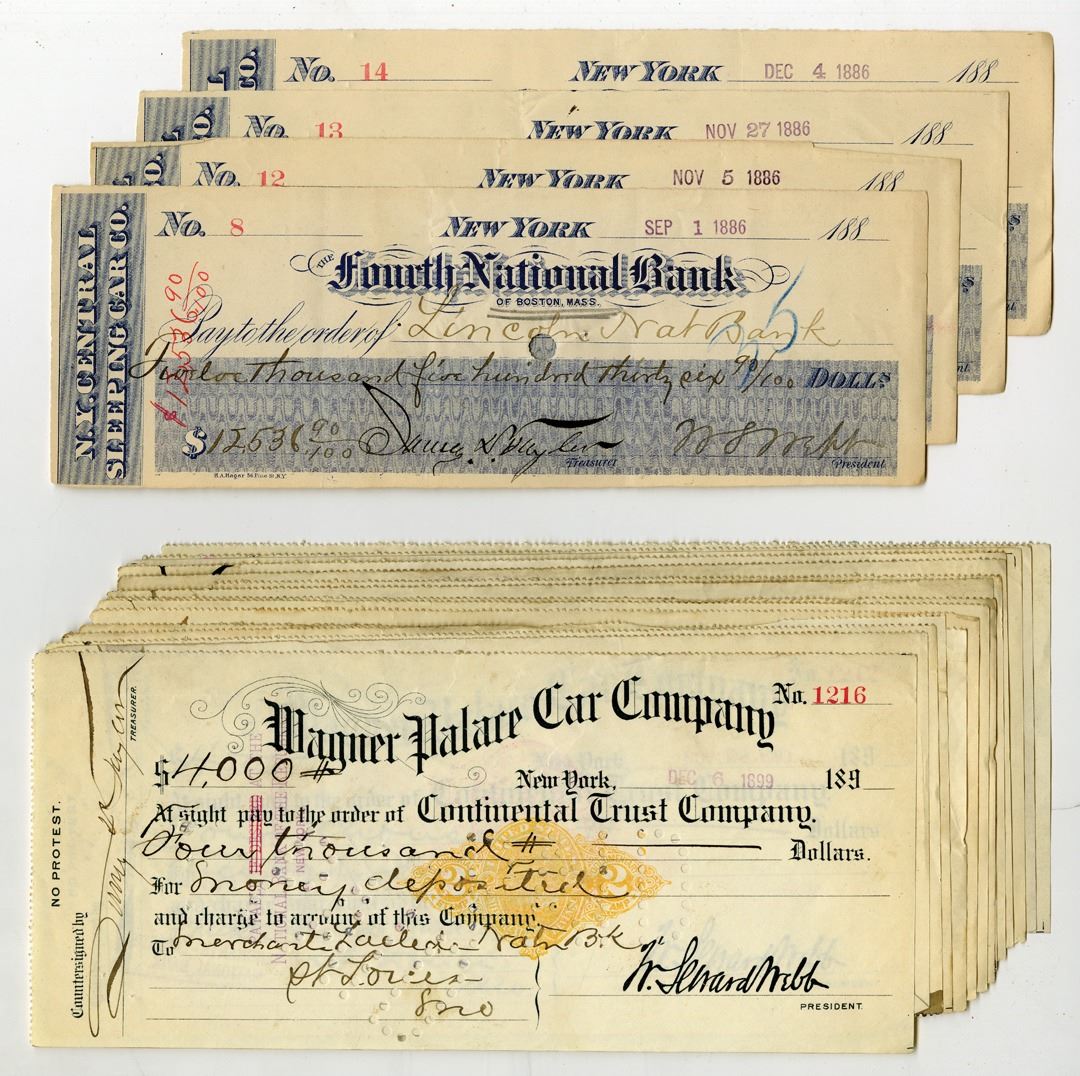 No. 14 NEW YORK DEC 4 1886 188
CO.
No. 13 NEW YORK NOV 27 1886 188
CO.
No. 12 NEW YORK NOV 5 1886 188
CO.
N.Y. CENTRAL
SLEEPING CAR CO.
No. 8 NEW YORK SEP 1 1886 188
THE Fourth National Bank
OF BOSTON, MASS.
$12536 90/100
Pay to the order of Lincoln Nat Bank
Twelve thousand five hundred thirty six 90/100 DOLLS
$12,536 90/100 W S Webb
Treasurer President
H.A. Hager 56 Pine St. N.Y.
Wagner Palace Car Company No. 1216
$4,000 #
New York, DEC 6 1899 189
At sight pay to the order of Continental Trust Company.
Four thousand # Dollars.
For money deposited
and charge to account of this Company.
To Merchants Laclede Natn Bk
St Louis
Mo
W. Seward Webb
PRESIDENT.
NO PROTEST.
Countersigned by
TREASURER.